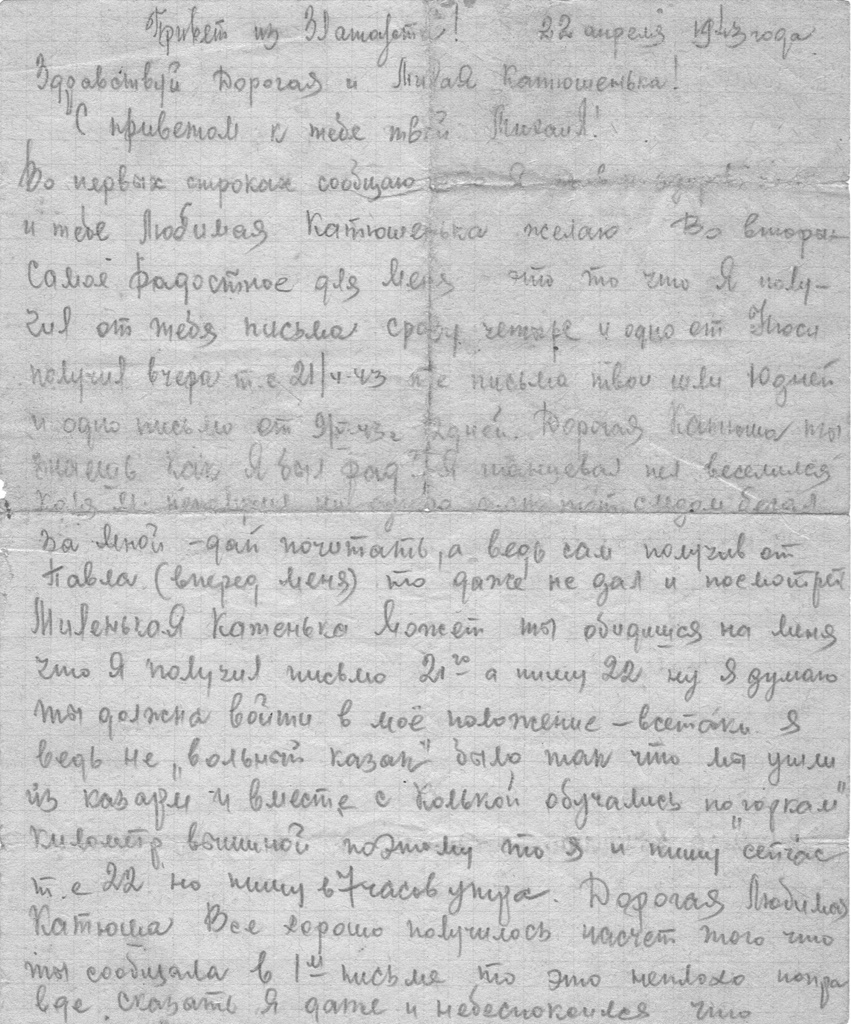 Привет из Златоуста! 22 апреля 1943 года
Здравствуй Дорогая и Милая Катюшенька!
С приветом к тебе твой Михаил!
Во первых строках сообщаю что Я жив и здоров
и тебе Любимая Катюшенька желаю Во вторы-
Самое радостное для меня это то что Я полу-
чил от тебя письма сразу четыре и одно от
получил вчера т.е 21/4-43 письма твои шли 10 дней
и одно письмо от дней. Дорогая Катюша ты
знаешь как Я был рад Я танцевал пел веселился
следом бегал
за мной - дай почитать, а ведь сам получив от
Павла (вперед меня) то даже не дал и посмотреть
Миленькая Катенька Может ты обидишся на меня
что Я получил письмо 21го а пишу 22 ну я думаю
ты должна войти в моё положение - всетаки Я
ведь не „вольный казак" было так что мы ушли
из казарм и вместе с Колькой обучались по „горкам"
километр вышиной поэтому то Я и пишу сейчас
т.е 22 но пишу в 7 часов утра. Дорогая Любимая
Катюша Все хорошо получилось насчет того что
ты сообщала в 1м письме то это неплохо попра
вде сказать Я даже и небеспокоился что